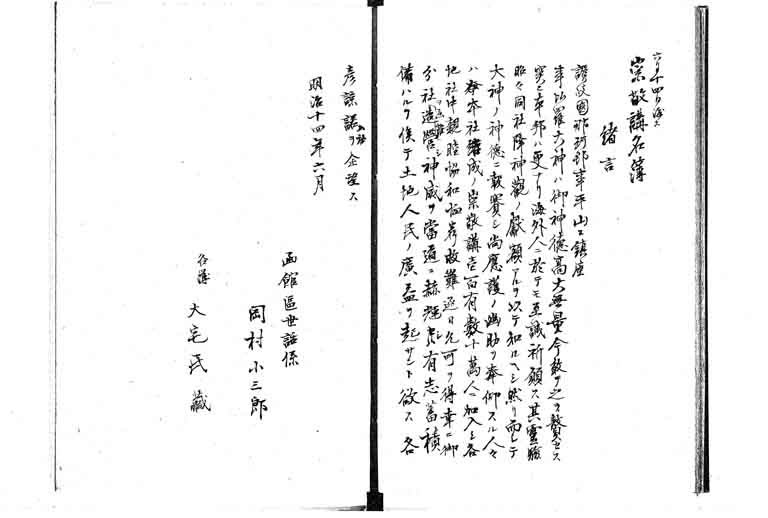 崇敬講名簿
緒言
讃岐國那珂郡琴平山ニ鎮座
事比羅大神ハ御神徳高大無量今敢テ之ヲ贅セス
實ニ本邦ハ更ナリ海外人ニ於テモ至誠祈願ス其霊験
昭々同社降神觀ノ獻額アルヲ以テ知ルヘシ然リ而シテ
大神ノ神徳ニ報賽シ尚應護ノ幽助ヲ奉仰スル人々
ハ本社結成ノ崇敬講壱百有数十萬人ニ加入シ各
地社中親睦協和
分社造営神威ヲ當道ニ赫輝シ有志蓄積
備ハルヲ俟テ土地人民ノ廣益ヲ起サント欲ス各
彦諒諾ヲ企望ス
明治十四年六月
函館區世話係
岡村小三郎
名簿
大宅民藏